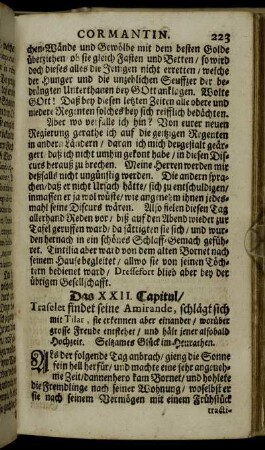 CORMANTIN. 223
chen Wände und Gewölbe mit dem besten Golde
überziehen ob sie gleich Fasten und Betten / so wird
doch dieses alles die Jenigen nicht erretten / welche
der Hunger und die ungeblichen Seuffzer der be-
drängten Unterthanen bey GOtt anklagen. Wolte
GOtt! Daß bey diesen letzten Zeiten alle obere und
niedere Regenten solches bey sich reifflich bedächten.
Aber wo verfalle ich hin? Von eurer neuen
Regierung gerathe ich auf die geitzigen Regenten
in andern Ländern / daran ich mich dergestalt geär-
gert / daß ich nicht umhin gekont habe / in diesen Dis-
curs heraus zu brechen. Meine Herren werden mir
deßfalls nicht ungünstig werden. Die andern spra-
chen / daß er nicht Ursach hätte / sich zu entschuldigen /
immassen er ja wol wüste / wie angenehm ihnen jedes-
mahl seine Discurs wären. Also fielen diesen Tag
allerhand Reden vor / biß auf den Abend wieder zur
Tafel geruffen ward / da sättigten sie sich / und wur-
den hernach in ein schönes Schlaff-Gemach gefüh-
ret. Tintilia aber ward von dem alten Bornet nach
seinem Hause begleitet / allwo sie von seinen Töch-
tern bedienet ward / Dressefort blieb aber bey der
übrigen Gesellschafft.
Das XXII. Capitul /
Traselet findet seine Amirande, schlägt sich
mit Tilar, sie erkennen aber einander / worüber
grosse Freude entstehet / und hält jener alsobald
Hochzeit. Seltzames Glück im Heurathen.
ALs der folgende Tag anbrach / gieng die Sonne
fein hell herfür / und machte eine sehr angeneh-
me Zeit / dannenhero kam Bornet / und hohlete
die Fremdlinge nach seiner Wohnung / woselbst er
sie nach seinem Vermögen mit einem Frühstück